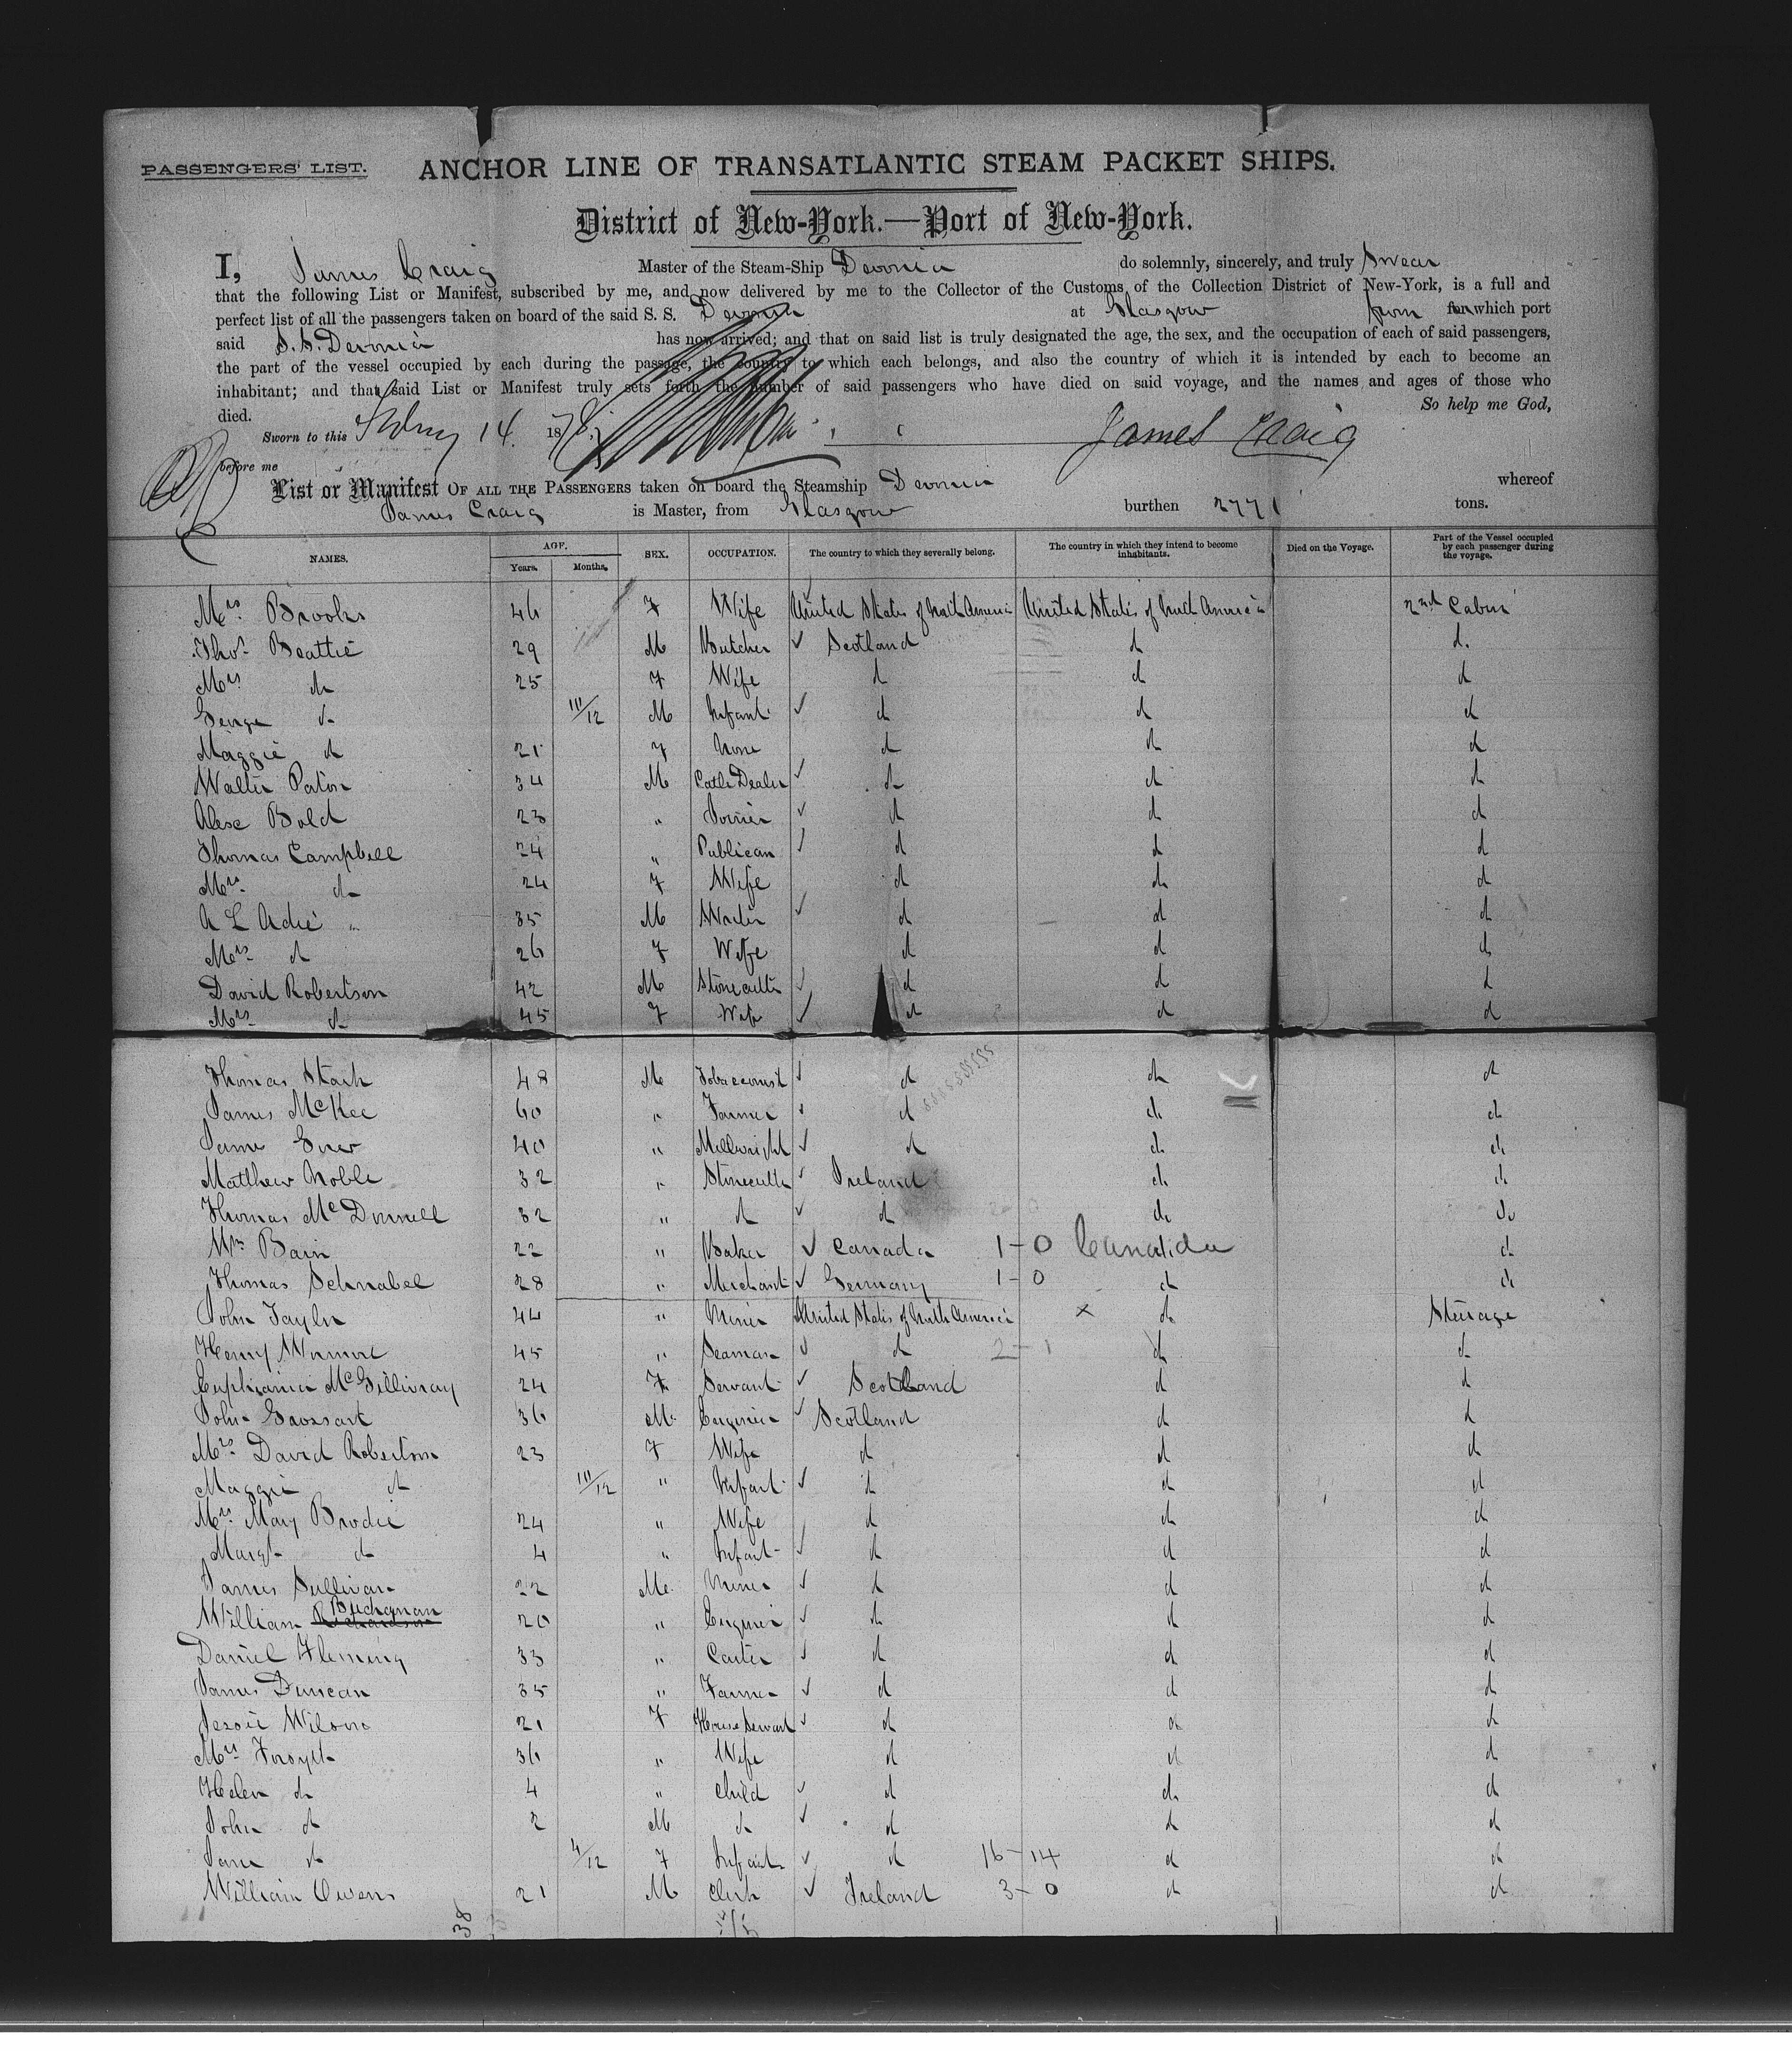 PASSENGERS' LIST. ANCHOR LINE OF TRANSATLANTIC STEAM PACKET SHIPS.
District of New-York.—Port of New-York.
I, James Craig Master of the Steam-Ship Devonia do solemnly, sincerely, and truly Swear
that the following List or Manifest, subscribed by me, and now delivered by me to the Collector of the Customs of the Collection District of New-York, is a full and
perfect list of all the passengers taken on board of the said S. S. Devonia at Glasgow from which port
said S.S. Devonia has now arrived; and that on said list is truly designated the age, the sex, and the occupation of each of said passengers,
the part of the vessel occupied by each during the passage, the country to which each belongs, and also the country of which it is intended by each to become an
inhabitant; and that said List or Manifest truly sets forth the number of said passengers who have died on said voyage, and the names and ages of those who
died. So help me God,
Sworn to this 14 1878 James Craig
before me
List or Manifest OF ALL THE PASSENGERS taken on board the Steamship Devonia whereof
James Craig is Master, from Glasgow burthen 2771 tons.
NAMES. AGE. Years. Months. SEX. OCCUPATION. The country to which they severally belong. The country in which they intend to become inhabitants. Died on the Voyage. Part of the Vessel occupied by each passenger during the voyage.
Mrs. Brooks 46 F Wife United States of North America United States of North America 2nd Cabin
Thos. Beattie 29 M Butcher Scotland do do
Mrs. do 25 F Wife do do do
George do 11/12 M Infant do do do
Maggie do 21 F None do do do
Walter Paton 34 M Cattle Dealer do do do
Alexr Bold 23 " Joiner do do do
Thomas Campbell 24 " Publican do do do
Mrs. do 24 F Wife do do do
A L Adie " 35 M do do do
Mrs. do 26 F Wife do do do
David Robertson 42 M Stonecutter do do do
Mrs. do 45 F Wife do do do
Thomas Stark 48 M Tobacconist do do do
James McKee 60 " Farmer do do do
40 " Millwright do do do
Matthew Noble 32 " Stonecutter Ireland do do
Thomas McDonnell 32 " do do do do
Wm Bain 22 " Baker Canada 1-0 Canada do
Thomas Schnabel 28 " Merchant Germany 1-0 do do
John Taylor 44 " Miner United States of North America x do Steerage
Henry 45 " Seaman do 2-1 do do
Euphemia McGillivray 24 F Servant Scotland do do
John Grossart 36 M. Engineer Scotland do do
Mrs. David Robertson 23 F Wife do do do
Maggie do 11/12 " Infant do do do
Mrs. Mary Brodie 24 " Wife do do do
Margt do 4 " Infant do do do
James Sullivan 22 M. Miner do do do
William Buchanan 20 " Engineer do do do
Daniel Fleming 33 " Carter do do do
James Duncan 35 " Farmer do do do
Jessie Wilson 21 F House Servant do do do
Mrs. Forsyth 36 " Wife do do do
Helen do 4 " Child do do do
John do 2 M do do do do
Jane do 4/12 F Infant do 16-14 do do
William Owens 21 M Clerk Ireland 3-0 do do
38